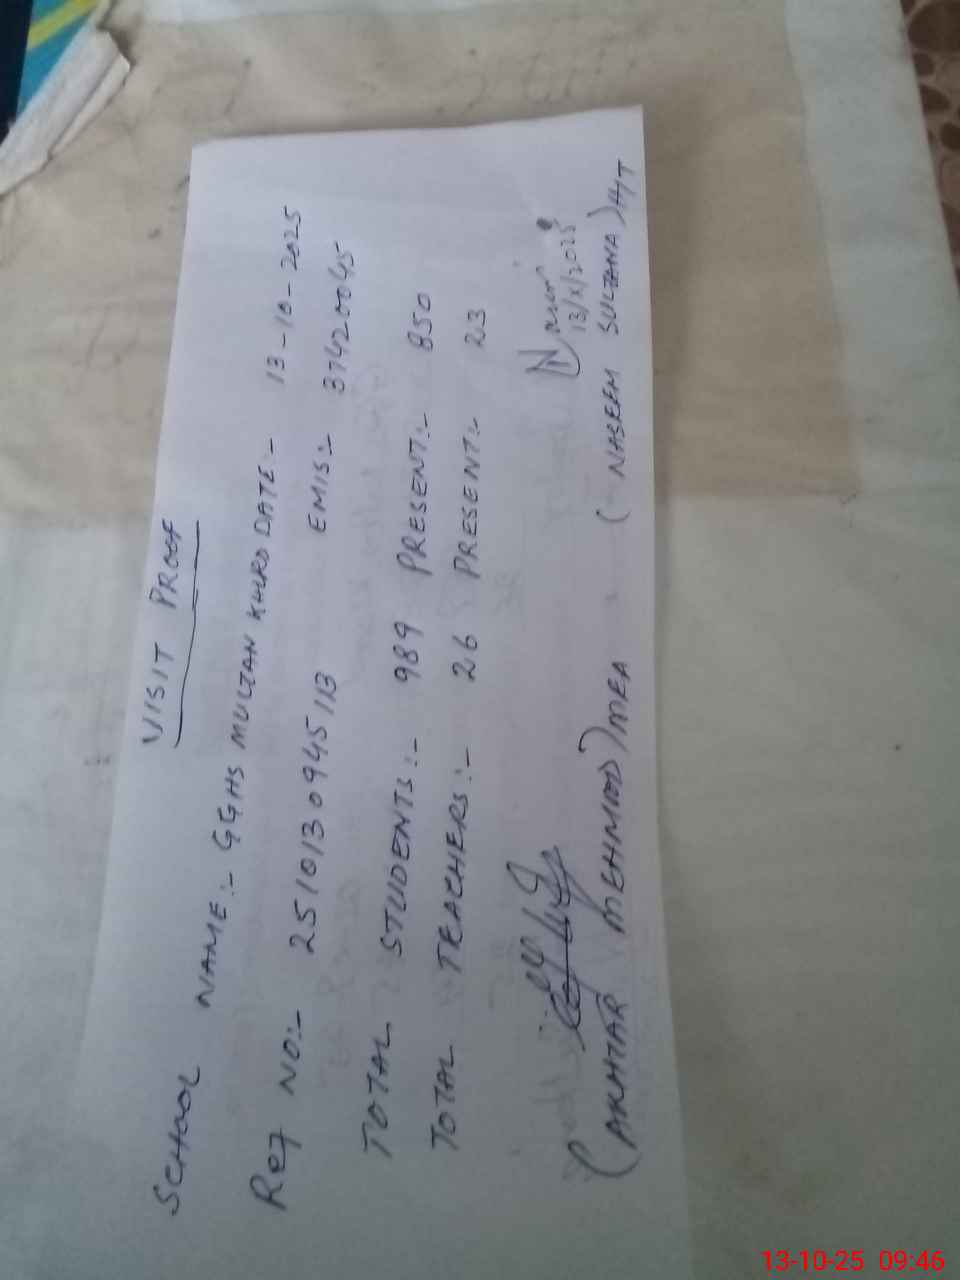 VISIT PROOF
SCHOOL NAME:- GGHS MULTAN KHURD DATE:- 13-10-2025
Ref NO:- 2510130945113 EMIS:- 37420045
TOTAL STUDENTS:- 989 PRESENT:- 850
TOTAL TEACHERS:- 26 PRESENT:- 23
13/X/2025
(AKHTAR MEHMOOD) MEA (NASEEM SULTANA) H/T
13-10-25 09:46